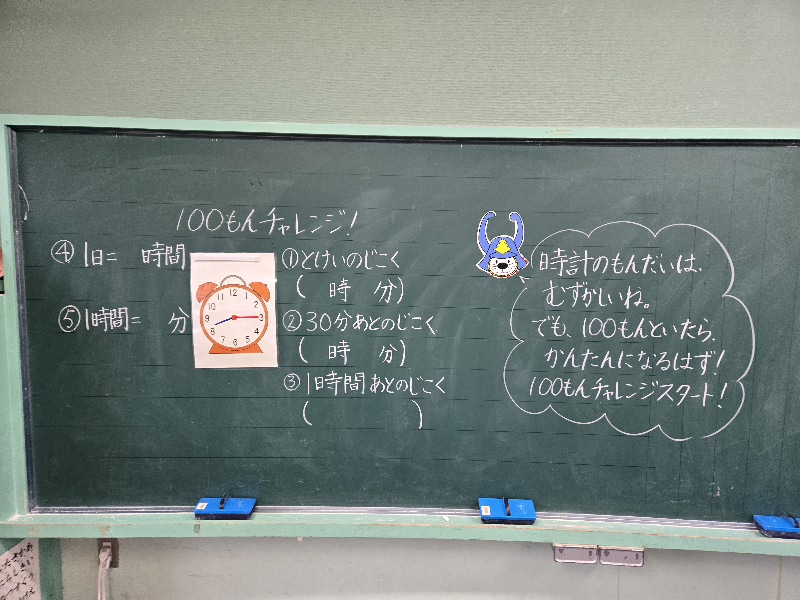 100もんチャレンジ!
④1日= 時間
⑤1時間= 分
12
1
2
3
4
5
6
7
8
9
10
11
①とけいのじこく
( 時 分)
②30分あとのじこく
( 時 分)
③1時間あとのじこく
( )
時計のもんだいは、
むずかしいね。
でも、100もんといたら、
かんたんになるはず!
100もんチャレンジスタート!